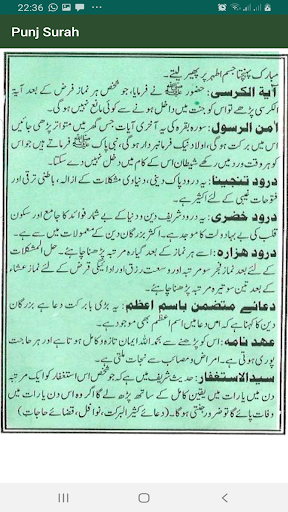 22:36
Punj Surah
مبارک پہنچتا جسم اطہر پر پھیر لیتے۔
آیۃ الکرسی: حضور ﷺ نے فرمایا، جو شخص ہر نماز فرض کے بعد آیۃ
الکرسی پڑھے تو اس کو جنت میں داخل ہونے سے کوئی مانع نہیں ہوگی۔
امن الرسول: سورہ بقرہ کی یہ آخری آیات جس گھر میں متواتر پڑھی جائیں
اس میں برکت، اولاد نیک فرمانبردار ہوگی، نبی پاک ﷺ نے فرمایا جو اس
کو ہر وقت ورد میں رکھے شیطان اس کے نام کو لے کر دھوکہ نہیں دے سکتا۔
درود تنجینا: یہ درود پاک دینی، و دنیاوی مشکلات کے ازالہ، باطنی ترقی اور
فتوحات غیبی کیلئے اکسیر ہے۔
درود خضری: یہ درود شریف دین و دنیا کے بے شمار فوائد کا جامع اور سکون
قلب کی بے بہا دولت کا موجد ہے۔ اکثر بزرگان دین کے معمولات میں سے ہے۔
درود ہزارہ: اسے ہر نماز کے بعد گیارہ مرتبہ پڑھنا چاہئے۔ حل المشکلات
کے لئے بعد نماز فجر سو مرتبہ اور وسعت رزق اور ادائیگی قرض کے لئے نماز عشاء
کے بعد تین سو تیرہ مرتبہ پڑھنا چاہئے۔
دعائے متضمن باسم اعظم: یہ بڑی بابرکت دعا ہے بزرگان
دین کا کہنا ہے کہ اس میں اسم اعظم بھی موجود ہے۔
عہد نامہ: اس کے پڑھنے سے بحمد اللہ ایمان تازہ و کامل ہوتا ہے اور ہر حاجت
پوری ہوتی ہے۔ امراض و مصائب سے نجات ملتی ہے۔
سید الاستغفار: حدیث شریف میں ہے کہ جو شخص اس استغفار کو ایک مرتبہ
دن میں یا رات میں یقین کامل کے ساتھ پڑھ لے گا اگر وہ اس دن یا رات میں
وفات پائے گا تو ضرور جنتی ہوگا۔ (دعائے کثیر البرکت، نوافل، قضائے حاجات)